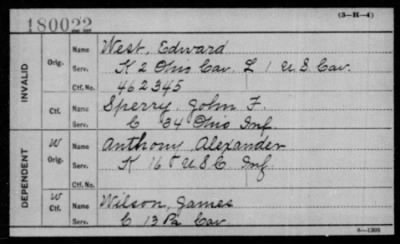 180022
(3-H-4)
INVALID
Orig.
Name West, Edward
Serv. K 2 Ohio Cav. L 1 U.S. Cav.
Ctf. No. 462345
Ctf.
Name Sperry, John F.
Serv. C 34 Ohio Inf.
DEPENDENT
W
Orig.
Name Anthony Alexander
Serv. K 16 U.S.C. Inf.
Ctf. No.
W
Ctf.
Name Wilson, James
Serv. C 13 Pa Cav